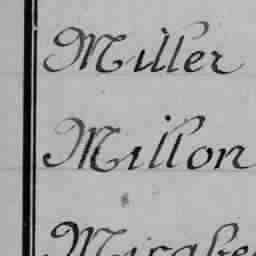 Miller
Millon